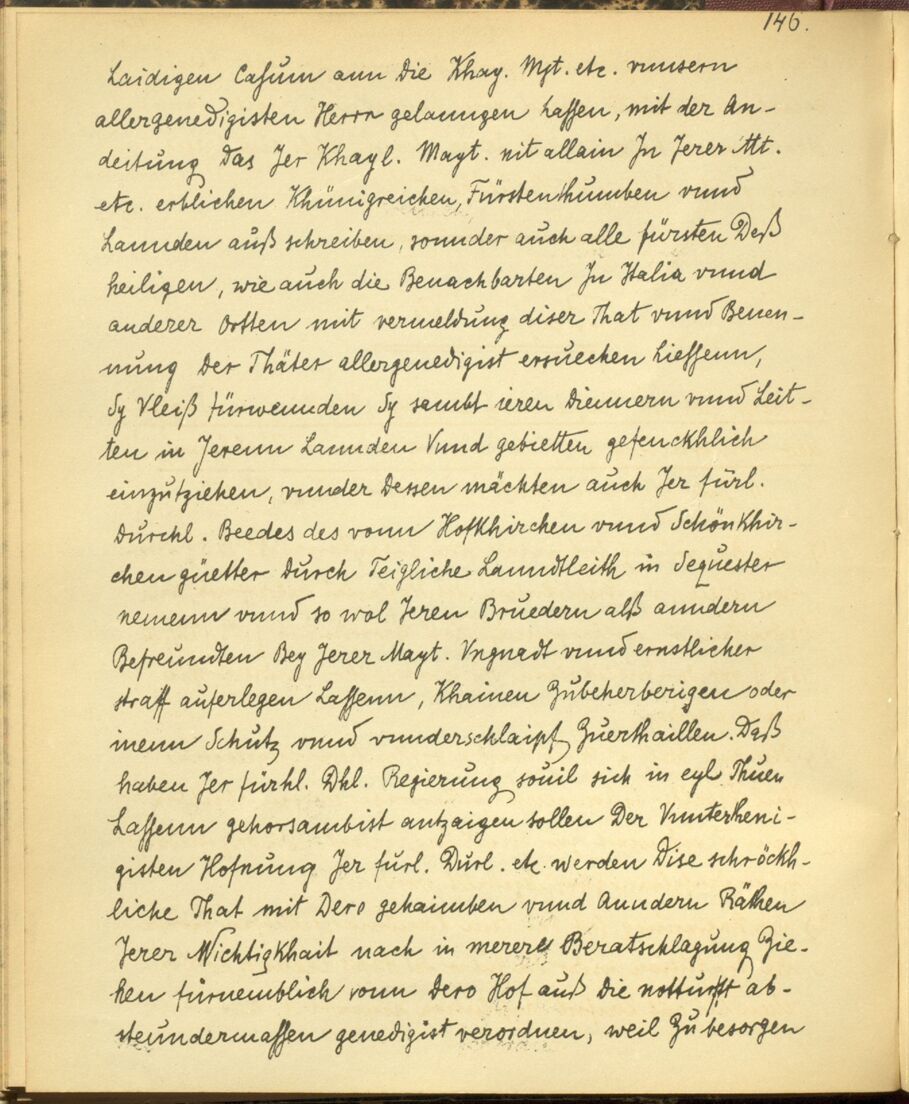 146.
Laidigen Casum ann Die Khay. Mgt. etc. vnnsern
allergenedigisten Herrn gelanngen Lassen, mit der An-
deitung Das Jer Khayl. Mayt. nit allain Jn Jerer Mt.
etc. erblichen Khünigreichen, Fürstenthumben vnnd
Lannden auß schreiben, sonnder auch alle fürsten Deß
heiligen, wie auch die Benachbarten Jn Italia vnnd
anderer Ortten mit vermeldung diser That vnnd Benen-
nung Der Thäter allergenedigist ersuechen Liessenn,
Sy Vleiß fürwennden Sy sambt ieren Diennern vnnd Leit-
ten in Jerenn Lannden Vnnd gebietten gefenckhlich
einzutziehen, vnnder Dessen mächten auch Jer fürl.
Durchl. Beedes des vonn Hofkhirchen vnnd Schönkhir-
chen güetter Durch Teigliche Lanndtleith in Sequester
nemenn vnnd so wol Jeren Bruedern alß anndern
Befreundten Bey Jerer Mayt. Vngnadt vnnd ernstlicher
straff auferlegen Lassenn, Khainen Zubeherberigen oder
inenn Schutz vnnd vnnderschlaipf Zuerthaillen. Daß
haben Jer fürhl. Dhl. Regierung souil sich in eyl Thuen
Lassenn gehorsambist antzaigen sollen Der Vnntertheni-
gisten Hofnung Jer fürl. Durl. etc. werden Dise schröckh-
liche That mit Dero gehaimben vnnd Anndern Räthen
Jerer Wichtigkhait nach in merere Beratschlagung Zie-
hen fürnemblich vonn Dero Hof auß Die notturfft ab-
genedigist verordnen, weil Zu besorgen